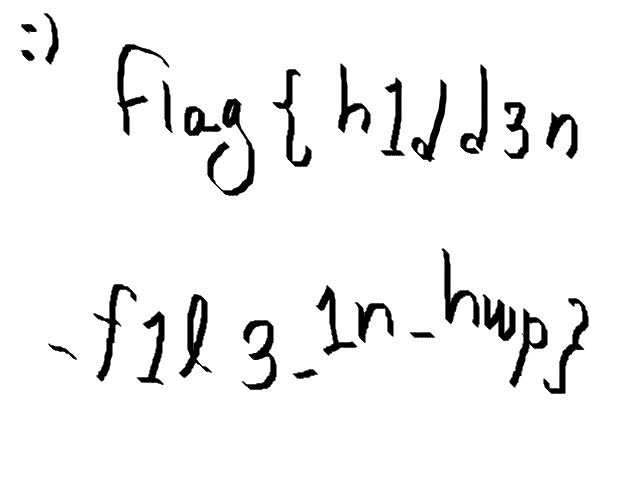 :)
Flag{h1dd3n
_f1l3_1n_hwp}